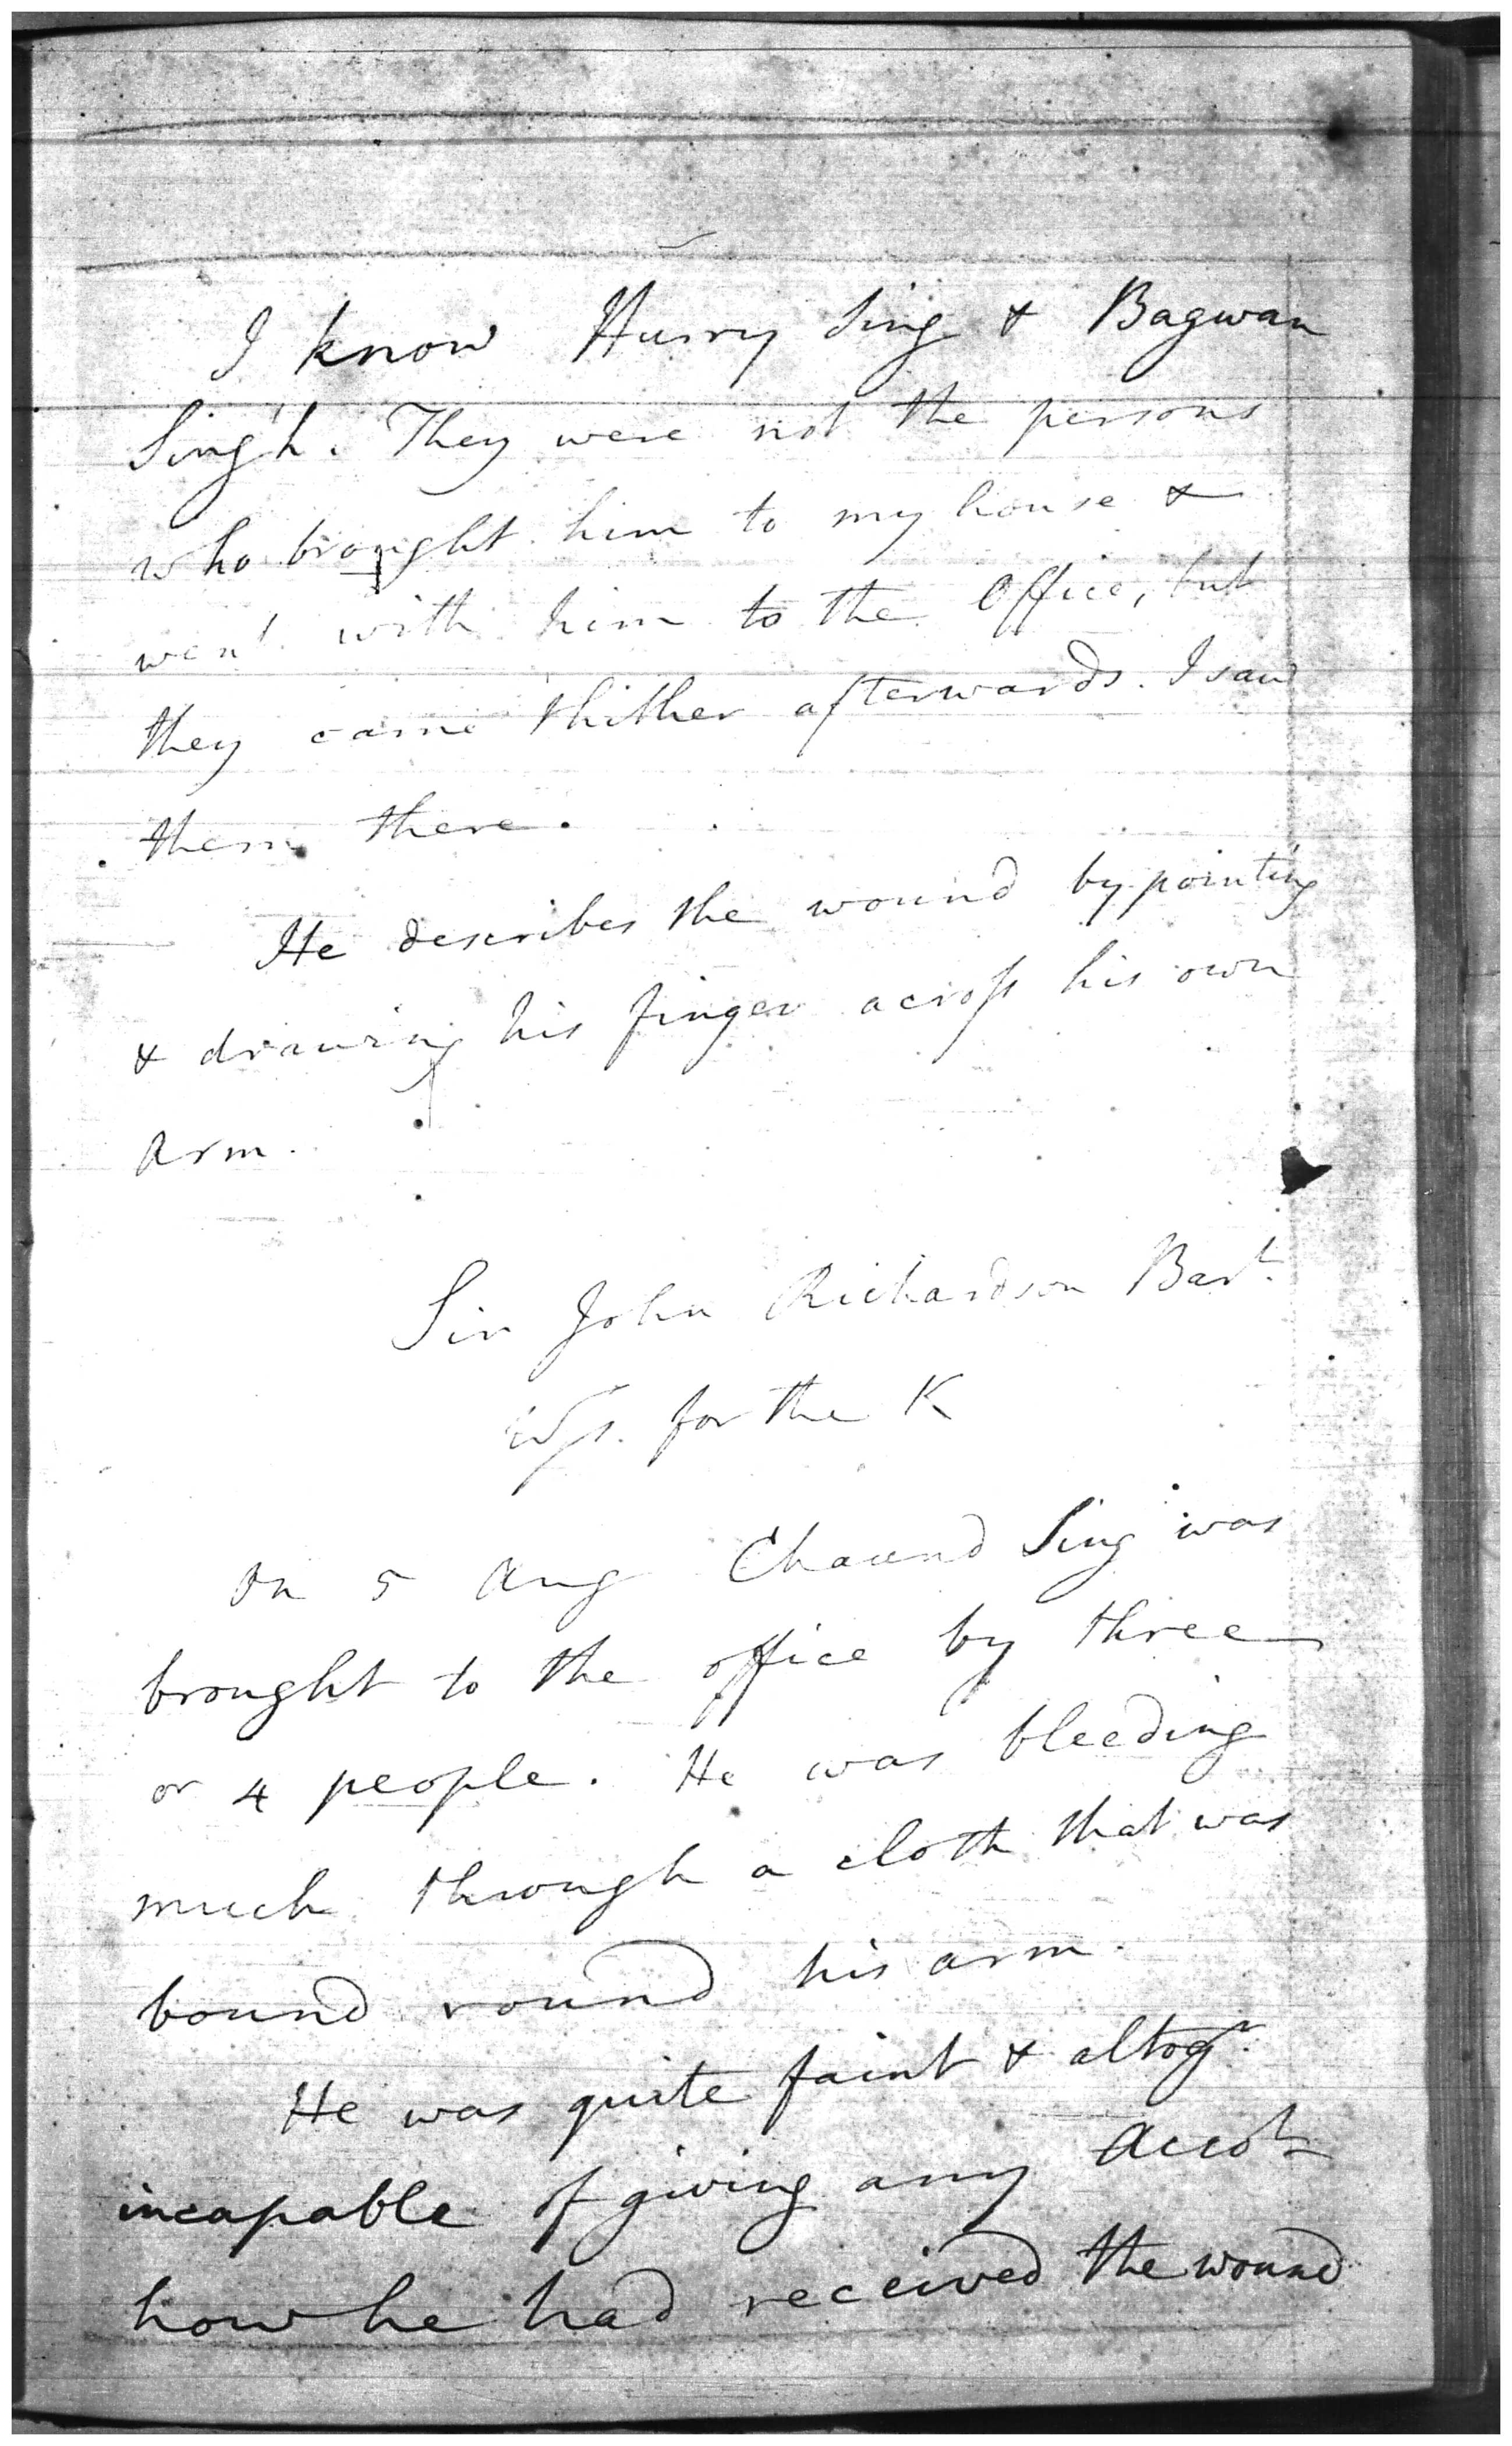 I know Hurry Sing & Bagwan
Singh. They were not the persons
who brought him to my house &
went with him to the Office, but
they came thither afterwards. I saw
them there.
He describes the wound by pointing
& drawing his finger across his own
arm.
Sir John Richardson Bart.
Ws. for the K
On 5 Aug Chaund Sing was
brought to the office by three
or 4 people. He was bleeding
much through a cloth that was
bound round his arm.
He was quite faint & altogr.
incapable of giving any Accot
how he had received the wound